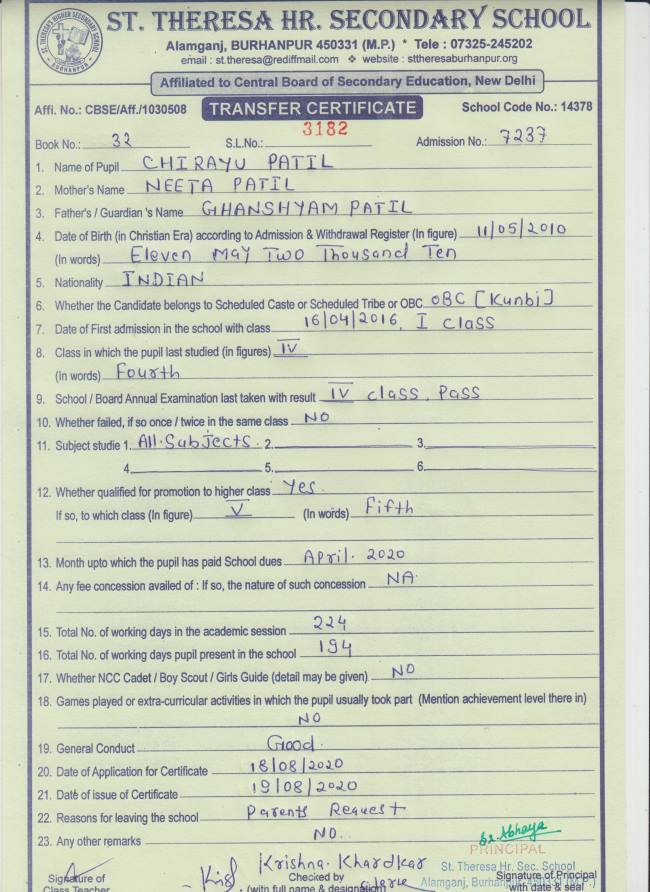 ST. THERESA HR. SECONDARY SCHOOL
ST. THERESA'S HIGHER SECONDARY SCHOOL
BURHANPUR
Alamganj, BURHANPUR 450331 (M.P.) * Tele : 07325-245202
email : st.theresa@rediffmail.com ❖ website : sttheresaburhanpur.org
Affiliated to Central Board of Secondary Education, New Delhi
Affi. No.: CBSE/Aff./1030508 TRANSFER CERTIFICATE School Code No.: 14378
Book No.: 32 S.L.No.: 3182 Admission No.: 7237
1. Name of Pupil CHIRAYU PATIL
2. Mother's Name NEETA PATIL
3. Father's / Guardian 's Name GHANSHYAM PATIL
4. Date of Birth (in Christian Era) according to Admission & Withdrawal Register (In figure) 11/05/2010
(In words) Eleven MAY Two Thousand Ten
5. Nationality INDIAN
6. Whether the Candidate belongs to Scheduled Caste or Scheduled Tribe or OBC OBC [Kunbi]
7. Date of First admission in the school with class 16/04/2016, I class
8. Class in which the pupil last studied (in figures) IV
(In words) Fourth
9. School / Board Annual Examination last taken with result IV class, Pass
10. Whether failed, if so once / twice in the same class NO
11. Subject studie 1. All.Subjects. 2. 3.
4. 5. 6.
12. Whether qualified for promotion to higher class Yes.
If so, to which class (In figure) V (In words) Fifth
13. Month upto which the pupil has paid School dues April. 2020
14. Any fee concession availed of : If so, the nature of such concession NA.
15. Total No. of working days in the academic session 224
16. Total No. of working days pupil present in the school 194
17. Whether NCC Cadet / Boy Scout / Girls Guide (detail may be given) NO
18. Games played or extra-curricular activities in which the pupil usually took part (Mention achievement level there in)
NO
19. General Conduct Good.
20. Date of Application for Certificate 18/08/2020
21. Date of issue of Certificate 19/08/2020
22. Reasons for leaving the school Parents Request
23. Any other remarks NO..
Sr. Abhaya
PRINCIPAL
Krishna. Khardkar
St. Theresa Hr. Sec. School
Signature of Checked by Signature of Principal
Alamganj, Burhanpur 450331 (M.P.)
Class Teacher (with full name & designation) Clerk with date & seal